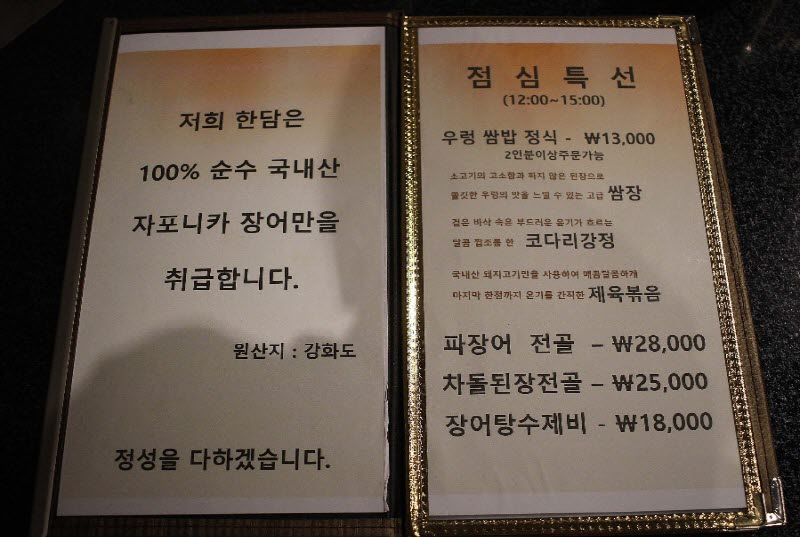 저희 한담은
100% 순수 국내산
자포니카 장어만을
취급합니다.
원산지 : 강화도
정성을 다하겠습니다.
점 심 특 선
(12:00~15:00)
우렁 쌈밥 정식 - ₩13,000
2인분이상주문가능
소고기의 고소함과 짜지 않은 된장으로
쫄깃한 우렁의 맛을 느낄 수 있는 고급 쌈장
겉은 바삭 속은 부드러운 윤기가 흐르는
달콤 짭조름 한 코다리강정
국내산 돼지고기만을 사용하여 매콤달콤하게
마지막 한점까지 온기를 간직한 제육볶음
파장어 전골 – ₩28,000
차돌된장전골 – ₩25,000
장어탕수제비 - ₩18,000